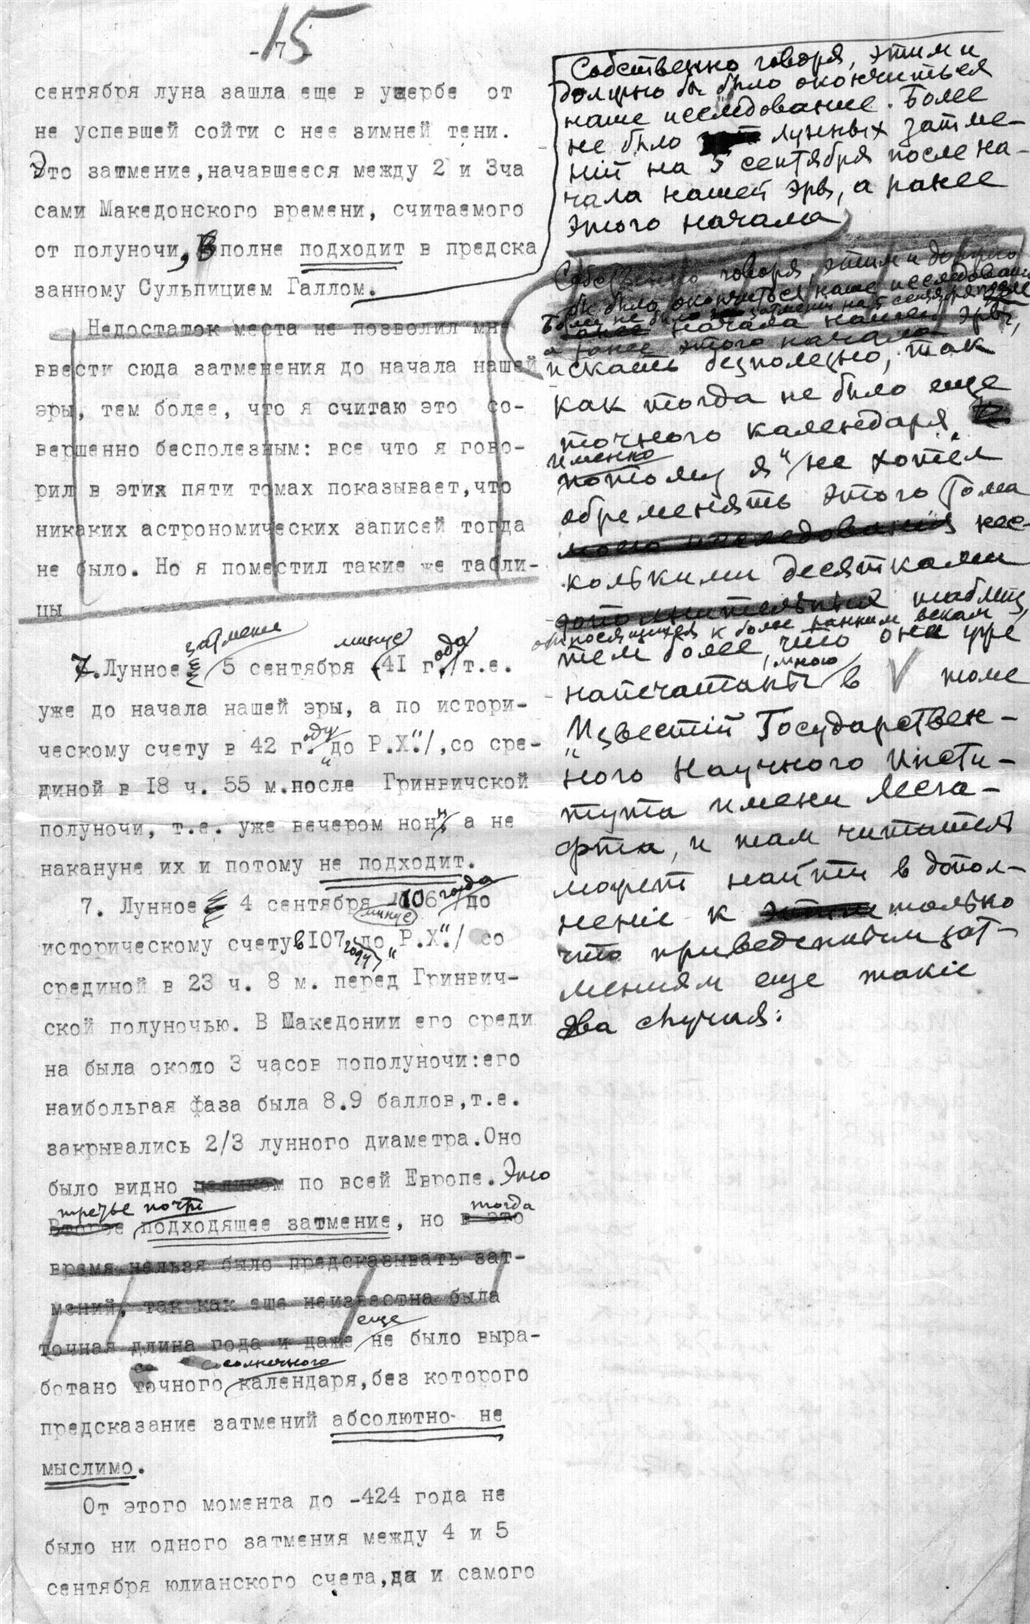 15
сентября луна зашла еще в ущербе от
не успевшей сойти с нее зимней тени.
Это затмение,начавшееся между 2 и 3ча
сами Македонского времени, считаемого
от полуночи, вполне подходит в предска
занному Сульпицием Галлом.
Собственно говоря, этим и
должно бы было окончиться
наше исследование. Более
не было лунных затме-
ний на 5 сентября после на-
чала нашей эры, а ранее
этого начала
Собственно говоря, этим и должно
бы было окончиться наше исследование
Более не было затмений на 5 сентября после
начала нашей эры,
а ранее этого начала
искать безполезно, так
как тогда не было еще
точного календаря
именно
потому я и не хотел
обременять этого тома
моего исследования нес-
колькими десятками
дополнительных таблиц,
относящихся к более ранним векам,
тем более, что они уже
напечатаны мною в V томе
"Известий Государствен-
ного Научного Инсти-
тута имени Лесга-
фта, и там читатель
может найти в допол-
нение к этим только
что приведенным зат-
мениям еще такие
два случая:
Недостаток места не позволил мне
ввести сюда затменения до начала нашей
эры, тем более, что я считаю это со-
вершенно бесполезным: все что я гово-
рил в этих пяти томах показывает,что
никаких астрономических записей тогда
не было. Но я поместил такие же табли-
цы
затмение минус ода
7.Лунное 5 сентября (41 г./т.е.
уже до начала нашей эры, а по истори-
ческому счету в 42 г.оду "до Р.Х."/,со сре-
диной в 18 ч. 55 м.после Гринвичской
полуночи, т.е. уже вечером нон, а не
накануне их и потому не подходит.
7. Лунное 4 сентября -106 года/до
минус
историческому счету в 107 году "до Р.Х."/ со
срединой в 23 ч. 8 м. перед Гринвич-
ской полуночью. В Македонии его среди
на была около 3 часов пополуночи:его
наибольгая фаза была 8.9 баллов,т.е.
закрывались 2/3 лунного диаметра.Оно
было видно целиком по всей Европе. Это
третье почти тогда
Второе подходящее затмение, но в это
время нельзя было предсказывать зат-
мений, так как еще неизвестна была
точная длина года и даже еще не было выра-
солнечного
ботано точного календаря,без которого
предсказание затмений абсолютно не
мыслимо.
От этого момента до -424 года не
было ни одного затмения между 4 и 5
сентября юлианского счета,да и самого